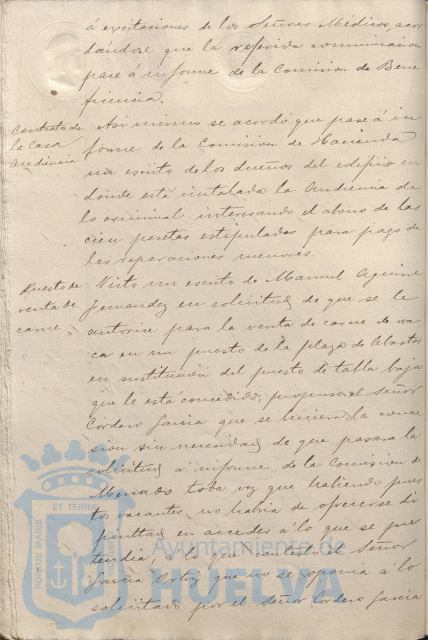 á excitaciones de los Señores Médicos, acor
dándose que la referida comunicacion
pase á informe de la Comision de Bene
ficencia.
Contrato de
la Casa
Audiencia
Asi mismo se acordó que pase á in
forme de la Comision de Hacienda
un escrito de los dueños del edificio en
donde está instalada la Audiencia de
lo criminal interesando el abono de las
cien pesetas estipuladas para pago de
las reparaciones menores.
Puesto de
venta de
carne
Visto un escrito de Manuel Aguirre
Fernandez en solicitud de que se le
autorice para la venta de carne de va
ca en un puesto de la plaza de Abastos
en sustitucion del puesto de tabla baja
que le está concedido, propuso el señor
Cordero Garcia que se hiciera la conce
sion sin necesidad de que pasara la
solicitud á informe de la Comision de
Mercado toda vez que habiendo pues
tos vacantes no habria de ofrecerse di
ficultad en acceder á lo que se pre
tendia, á lo que contestó el Señor
Garcia Ortiz que no se oponia á lo
solicitado por el Señor Cordero Garcia
PORTUS MARIS
ET TERRÆ
Ayuntamiento de
HUELVA